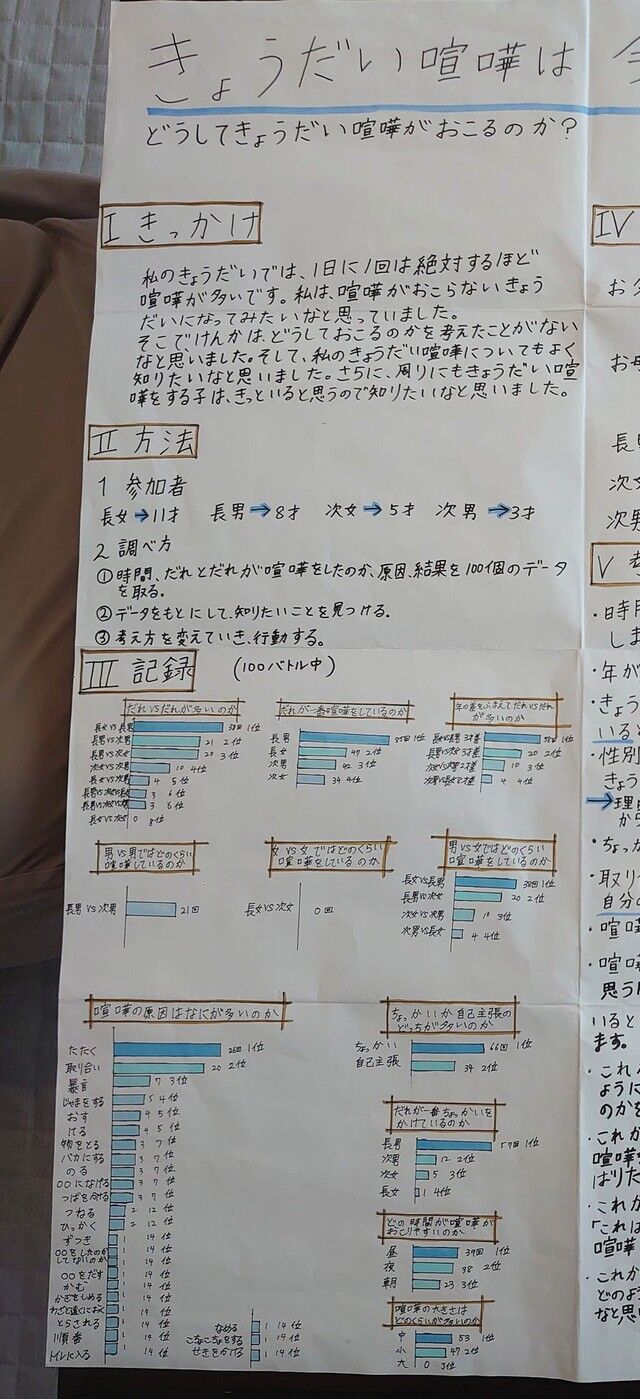 きょうだい喧嘩は
どうしてきょうだい喧嘩がおこるのか?
I きっかけ
私のきょうだいでは、1日に1回は絶対するほど
喧嘩が多いです。私は、喧嘩がおこらないきょう
だいになってみたいなと思っていました。
そこでけんかは、どうしておこるのかを考えたことがない
なと思いました。そして、私のきょうだい喧嘩についてもよく
知りたいなと思いました。さらに、周りにもきょうだい喧
嘩をする子は、きっといると思うので知りたいなと思いました。
II 方法
1 参加者
長女→11才 長男→8才 次女→5才 次男→3才
2 調べ方
①時間、だれとだれが喧嘩をしたのか、原因、結果を100個のデータ
を取る。
②データをもとにして、知りたいことを見つける。
③考え方を変えていき、行動する。
III 記録 (100バトル中)
だれVSだれが多いのか
長女VS長男 38回 1位
長男VS次男 21 2位
長男VS次女 20 3位
次女VS次男 10 4位
長女VS次男 4 5位
3 6位
3 6位
長女VS次女 0 8位
だれが一番喧嘩をしているのか
長男 85回 1位
長女 47 2位
次男 42 3位
次女 34 4位
年の差をふまえてだれVSだれ
が多いのか
長女VS長男 3才差 38回 1位
長男VS次女 3才差 20 2位
次女VS次男 2才差 10 3位
4 4位
男VS男ではどのくらい
喧嘩しているのか
長男VS次男 21回
女VS女ではどのくらい
喧嘩をしているのか
長女VS次女 0回
男VS女ではどのくらい
喧嘩をしているのか
長女VS長男 38回 1位
長男VS次女 20 2位
次女VS次男 10 3位
次男VS長女 4 4位
喧嘩の原因はなにが多いのか
たたく 26回 1位
取り合い 20 2位
暴言 7 3位
じゃまをする 5 4位
おす 4 5位
ける 4 5位
物をとる 3 7位
バカにする 3 7位
のる 3 7位
○○になげる 3 7位
つばを付ける 3 7位
つねる 2 12位
ひっかく 2 12位
ずつき 1 14位
○○をしたのか
してないのか 1 14位
○○をだす 1 14位
かむ 1 14位
かぎをしめる 1 14位
わざと遠くにおく 1 14位
とらされる 1 14位
順番 1 14位
トイレに入る 1 14位
なめる 1 14位
こちょこちょをする 1 14位
せきをかける 1 14位
ちょっかいか自己主張の
どっちが多いのか
ちょっかい 66回 1位
自己主張 34 2位
だれが一番ちょっかいを
かけているのか
長男 1位
次男 12 2位
次女 5 3位
長女 1 4位
どの時間が喧嘩が
おこりやすいのか
昼 39回 1位
夜 38 2位
朝 23 3位
喧嘩の大きさは
どのくらいが多いのか
中 53 1位
小 47 2位
大 0 3位
IV
お父
お母
長男
次女
次男
V 考
・日時
しま
・年が
・きょう
いると
・性別
きょう
→理由
から
・ちょっか
・取り
自分の
・喧嘩
・喧嘩
思うに
いると
ます。
・これ
ように
のかを
・これか
喧嘩
ばりた
・これか
「これは
喧嘩
・これか
どのよう
なと思